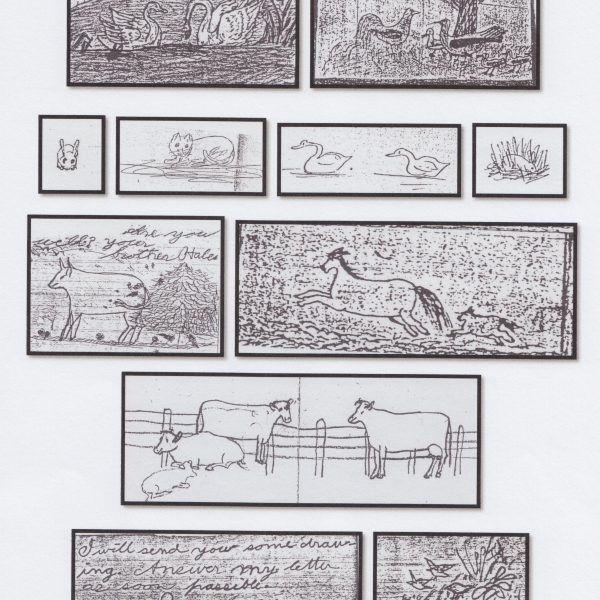 Are you
well? your
brother Hale
I will send you some draw-
ing. Answer my letter
as soon as possible.